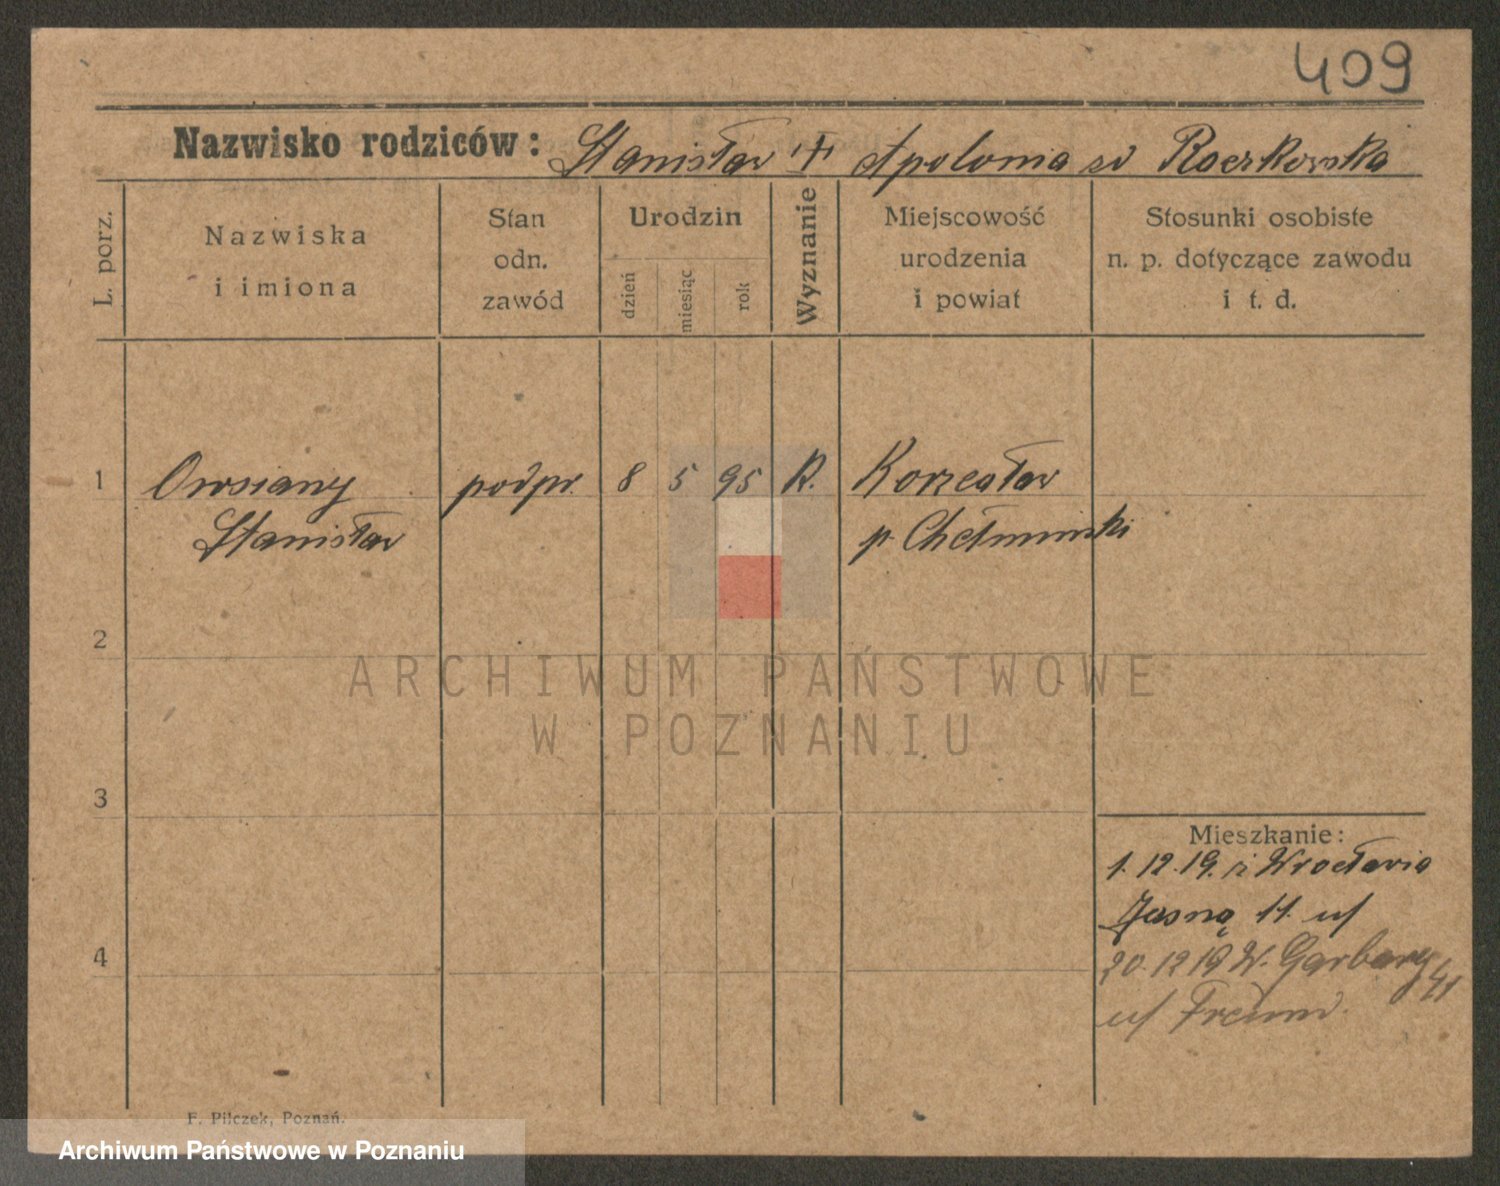 409
Nazwisko rodziców: Stanisław + Apolonia zd Raczkowska
L. porz.
Nazwiska
i imiona
Stan
odn.
zawód
Urodzin
dzień
miesiąc
rok
Wyznanie
Miejscowość
urodzenia
i powiat
Stosunki osobiste
n. p. dotyczące zawodu
i t. d.
1 Owsiany podpr. 8 5 95 R.
Stanisław p. Chełmiński
2
3
4
Mieszkanie:
1.12.19. z Wrocławia
Jasną 11
20.12 19 W. Garbary 41
F. Pilczek, Poznań.
ARCHIWUM PAŃSTWOWE
W POZNANIU
Archiwum Państwowe w Poznaniu